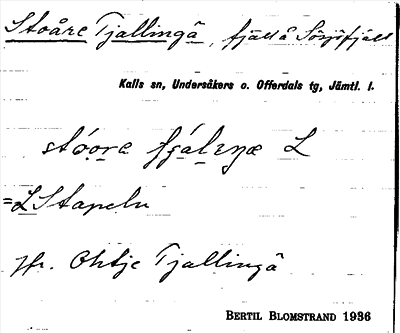 Stoåre Tjallingå, fjäll å Sösjöfjäll
Kalls sn, Undersåkers o. Offerdals tg, Jämtl. l.
stóo̩ra fjálıŋæ L
=L Stapeln
Jfr. Ohtje Tjallingå
BERTIL BLOMSTRAND 1936